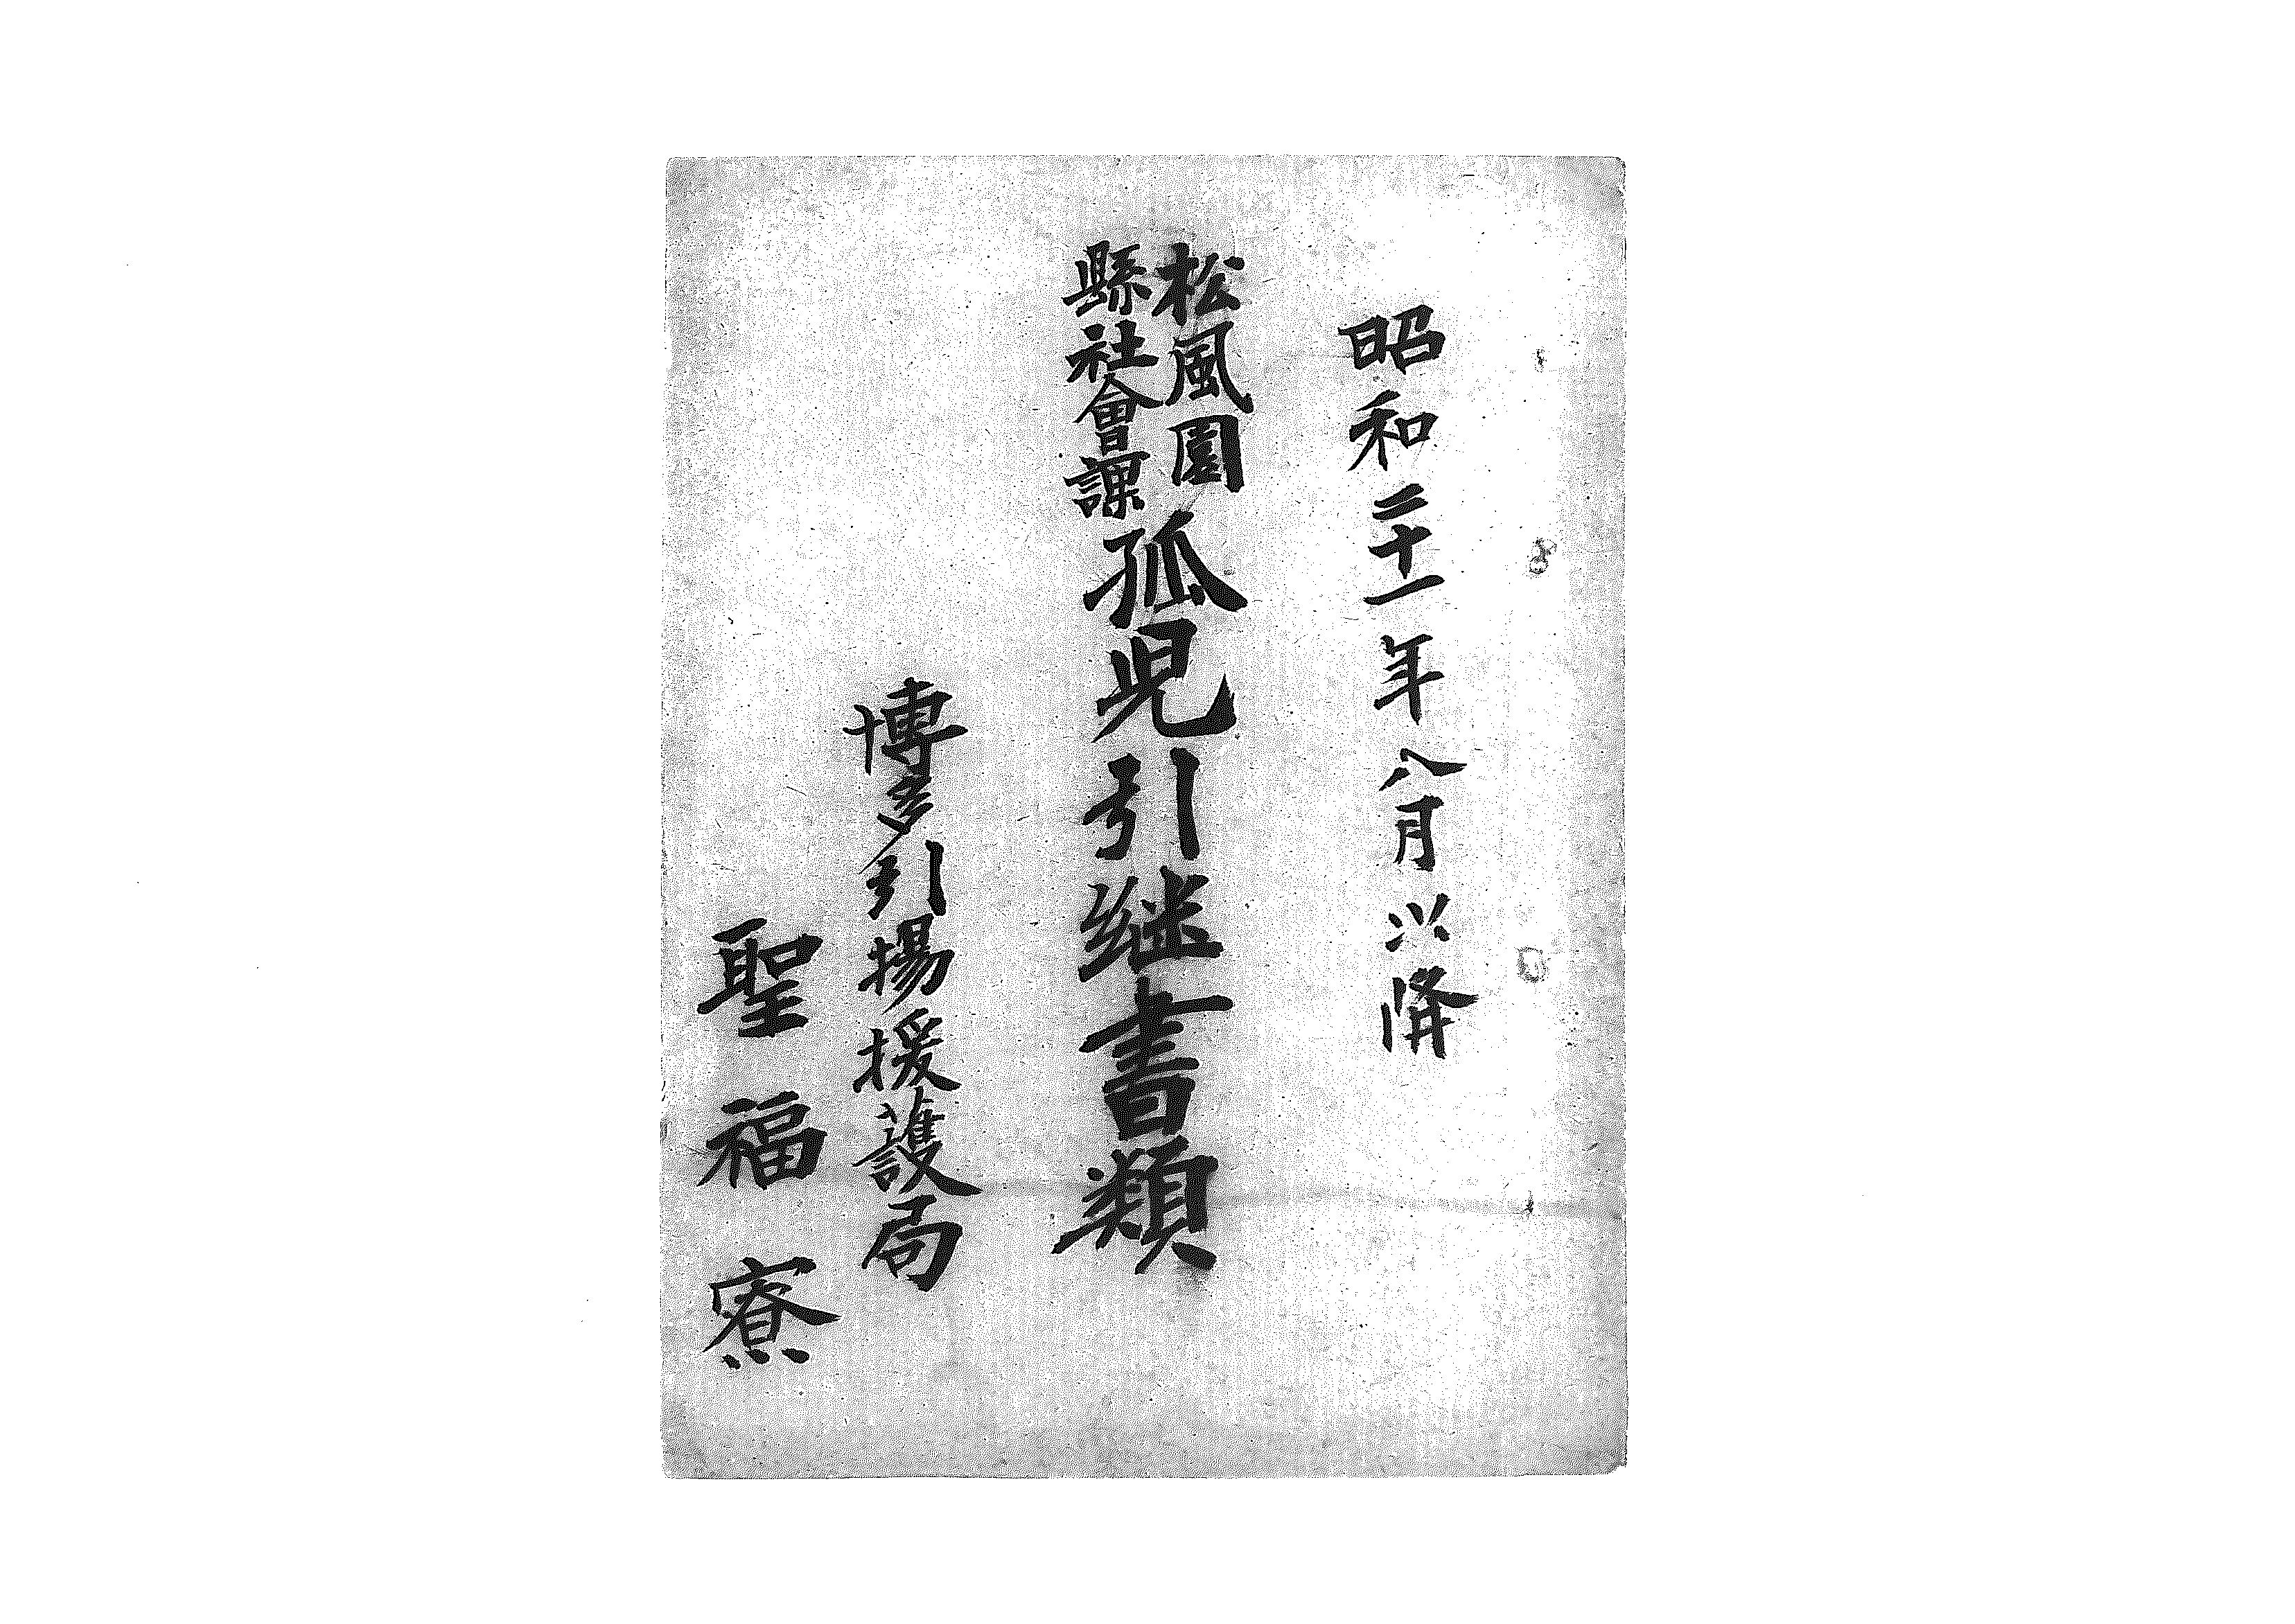 昭和二十一年八月以降
松風園
縣社會課
孤児引継書類
博多引揚援護局
聖福寮